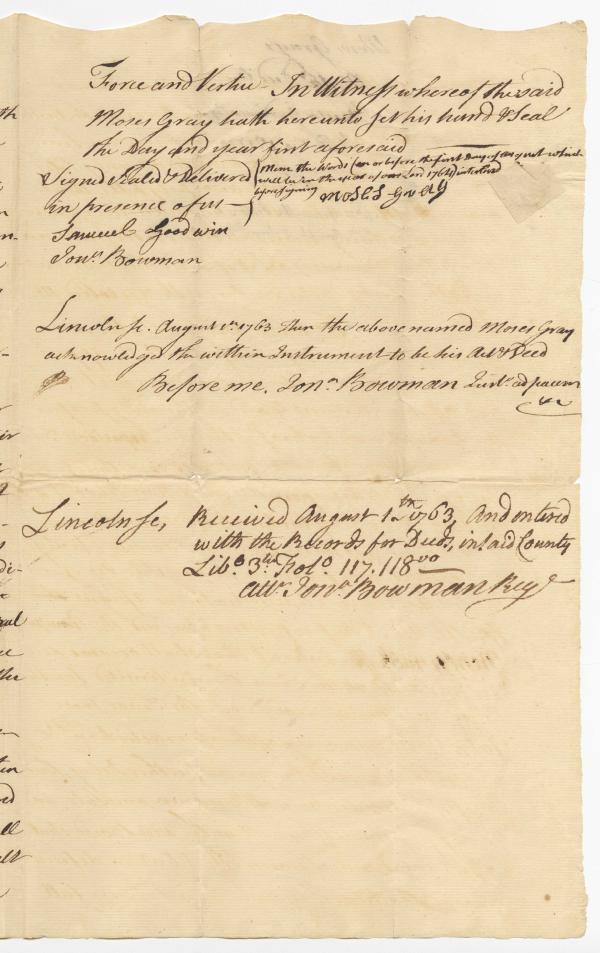 Force and Vertue - In Witness whereof the said
Moses Gray hath hereunto set his hand & Seal
the Day and year first aforesaid
Signed Sealed & Delivered
in presence of us
Samuel Goodwin
Jonn. Bowman
Mem. the Words (on or before the first Day of May next which
will be in the year of our Lord 1764) interlined
before signing
Moses Gray
Lincoln ss. August 1st. 1763 Then the above named Moses Gray
acknowledged the within Instrument to be his Act & Deed
Before me. Jonn. Bowman Just. ad pacem
Lincoln ss, Received August 1st 1763, And entered
with the Records for Deeds, in said County
Libo. 3. Folo. 117. 118
Attr. Jonn. Bowman Regr.
th
n
-
ir
di-
ten